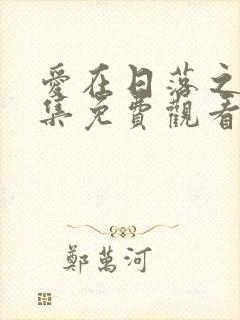 愛在日落之
集免費觀看
鄭萬河